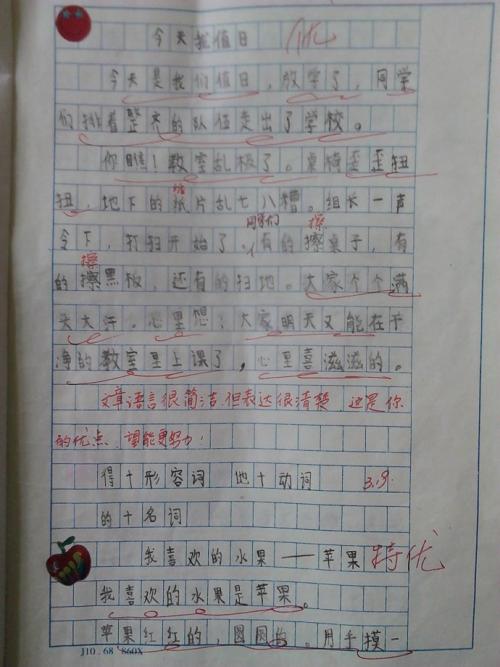 今天我值日 优
今天是我们值日，放学了，同学
们排着整齐的队伍走出了学校。
你瞧！教室乱极了。桌椅歪歪扭
扭，地下的纸片乱七八糟。组长一声
同学们 擦
令下，打扫开始了。有的擦桌子，有
擦
的擦黑板，还有的扫地。大家个个满
头大汗。心里想：大家明天又能在干
净的教室里上课了，心里喜滋滋的。
文章语言很简洁，但表达很清楚，这是你
的优点，望能更努力！
得十形容词 地十动词 3.9.
的十名词
我喜欢的水果——苹果 特优
我喜欢的水果是苹果。
苹果红红的，圆圆的。用手摸一
J10.68